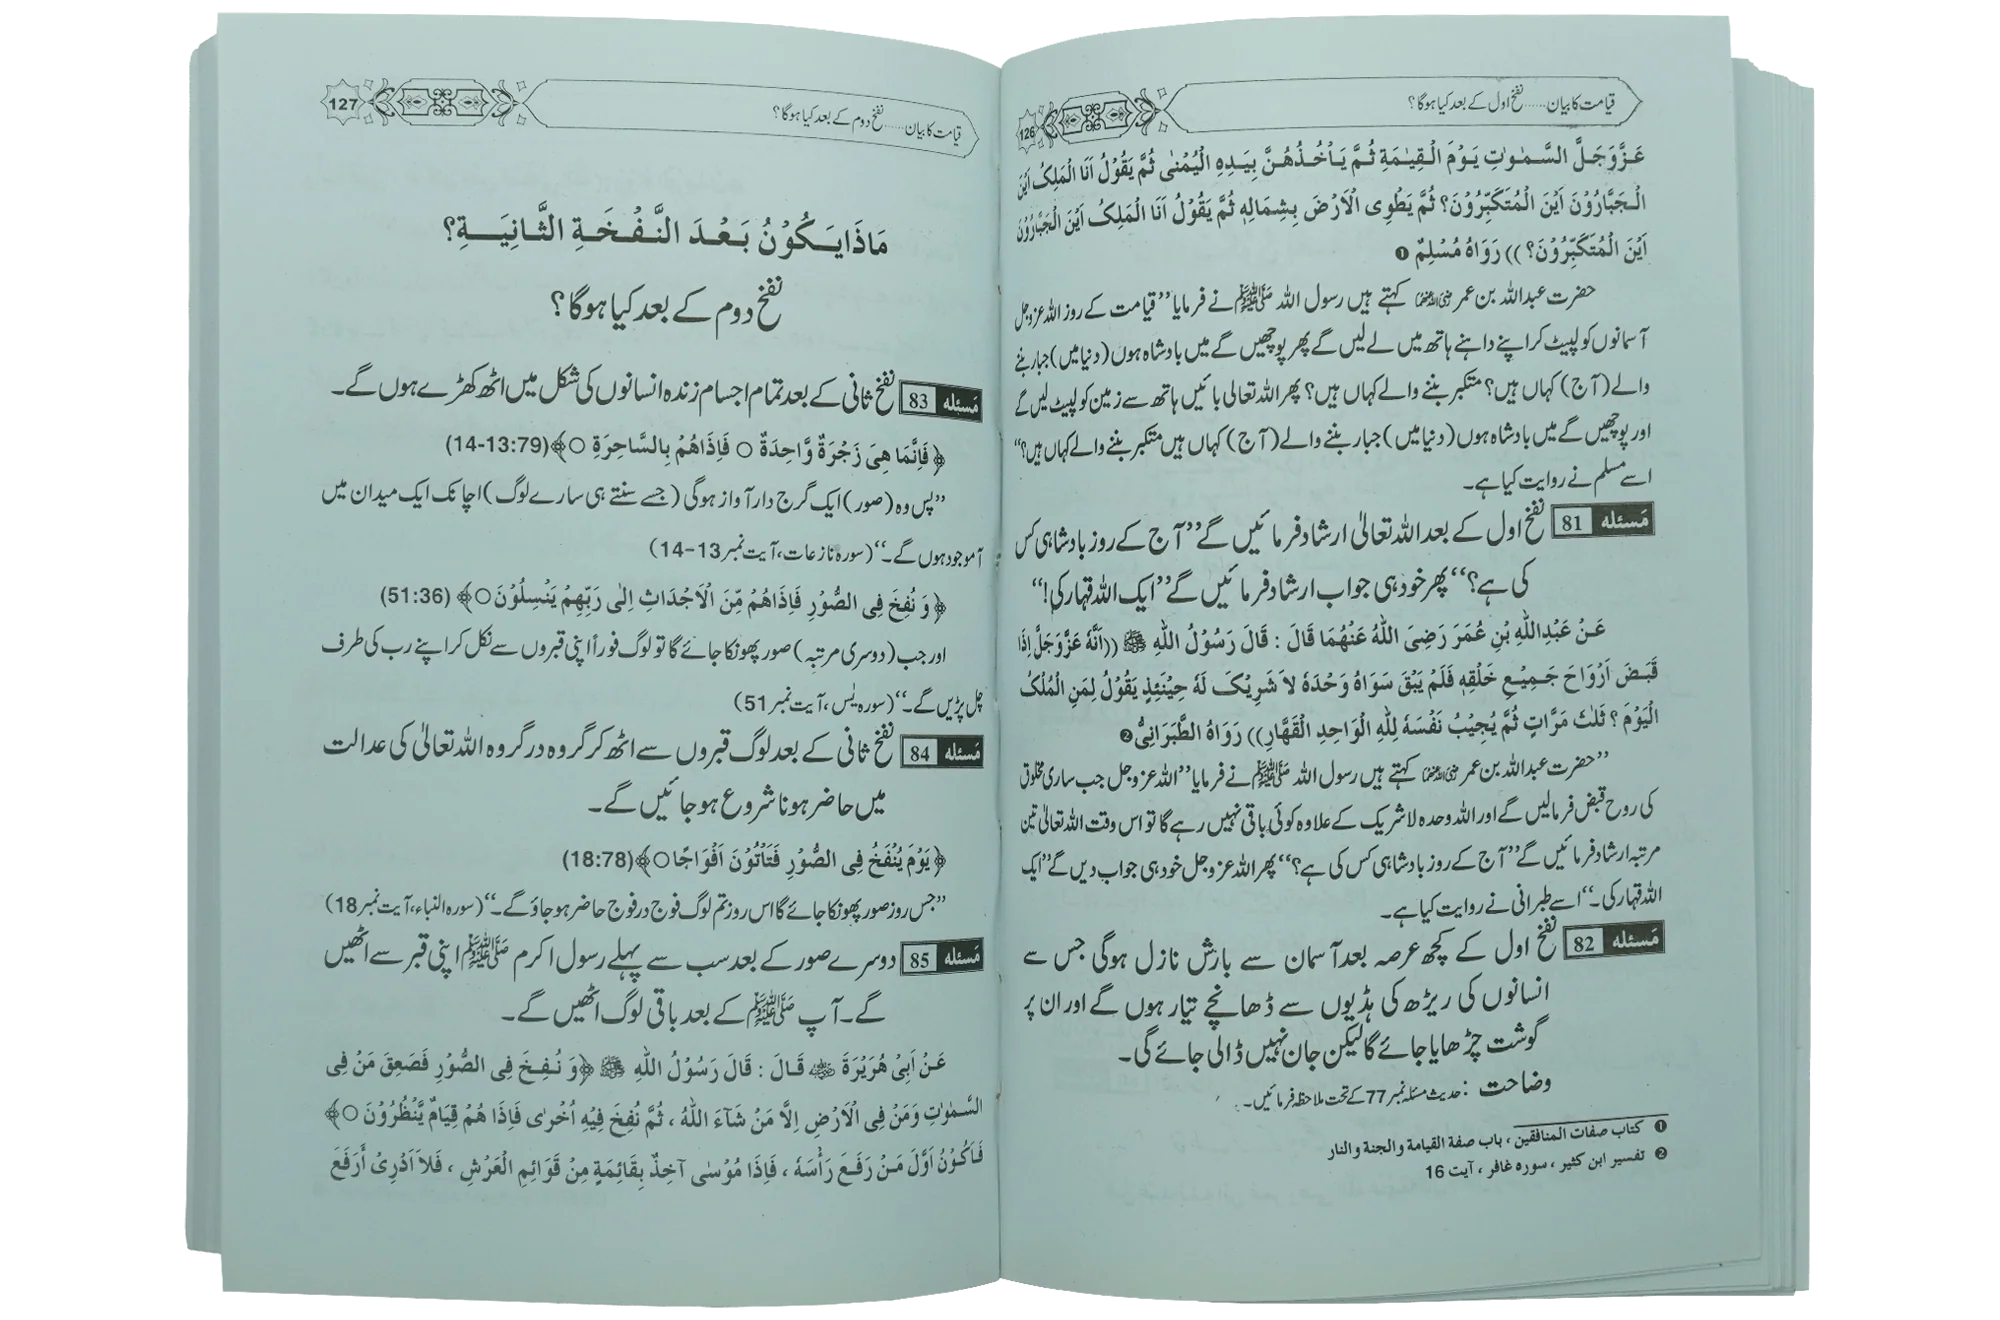 قیامت کا بیان ...... نفخ اول کے بعد کیا ہوگا؟
126
عَزَّوَجَلَّ السَّمٰوٰتِ يَوْمَ الْقِيٰمَةِ ثُمَّ يَاْخُذُهُنَّ بِيَدِهِ الْيُمْنٰى ثُمَّ يَقُوْلُ اَنَا الْمَلِكُ اَيْنَ
الْجَبَّارُوْنَ اَيْنَ الْمُتَكَبِّرُوْنَ؟ ثُمَّ يَطْوِى الْاَرْضَ بِشِمَالِهٖ ثُمَّ يَقُوْلُ اَنَا الْمَلِكُ اَيْنَ الْجَبَّارُوْنَ
اَيْنَ الْمُتَكَبِّرُوْنَ؟)) رَوَاهُ مُسْلِمٌ ❶
حضرت عبداللہ بن عمر رضی اللہ عنہما کہتے ہیں رسول اللہ ﷺ نے فرمایا ’’قیامت کے روز اللہ عزوجل
آسمانوں کو لپیٹ کر اپنے داہنے ہاتھ میں لے لیں گے پھر پوچھیں گے میں بادشاہ ہوں (دنیا میں) جبار بننے
والے (آج) کہاں ہیں؟ متکبر بننے والے کہاں ہیں؟ پھر اللہ تعالیٰ بائیں ہاتھ سے زمین کو لپیٹ لیں گے
اور پوچھیں گے میں بادشاہ ہوں (دنیا میں) جبار بننے والے (آج) کہاں ہیں متکبر بننے والے کہاں ہیں؟‘‘
اسے مسلم نے روایت کیا ہے۔
مَسئله 81 نفخ اول کے بعد اللہ تعالیٰ ارشاد فرمائیں گے ’’آج کے روز بادشاہی کس
کی ہے؟‘‘ پھر خود ہی جواب ارشاد فرمائیں گے ’’ایک اللہ قہار کی!‘‘
عَنْ عَبْدِاللّٰهِ بْنِ عُمَرَ رَضِىَ اللّٰهُ عَنْهُمَا قَالَ : قَالَ رَسُوْلُ اللّٰهِ ﷺ ((اَنَّهٗ عَزَّوَجَلَّ اِذَا
قَبَضَ اَرْوَاحَ جَمِيْعِ خَلْقِهٖ فَلَمْ يَبْقَ سَوَاهُ وَحْدَهٗ لاَ شَرِيْكَ لَهٗ حِيْنَئِذٍ يَقُوْلُ لِمَنِ الْمُلْكُ
الْيَوْمَ ؟ ثَلٰثَ مَرَّاتٍ ثُمَّ يُجِيْبُ نَفْسَهٗ لِلّٰهِ الْوَاحِدِ الْقَهَّارِ)) رَوَاهُ الطَّبَرَانِىُّ ❷
’’حضرت عبداللہ بن عمر رضی اللہ عنہما کہتے ہیں رسول اللہ ﷺ نے فرمایا ’’اللہ عزوجل جب ساری مخلوق
کی روح قبض فرما لیں گے اور اللہ وحدہ لاشریک کے علاوہ کوئی باقی نہیں رہے گا تو اس وقت اللہ تعالیٰ تین
مرتبہ ارشاد فرمائیں گے ’’آج کے روز بادشاہی کس کی ہے؟‘‘ پھر اللہ عزوجل خود ہی جواب دیں گے ’’ایک
اللہ قہار کی۔‘‘ اسے طبرانی نے روایت کیا ہے۔
مَسئله 82 نفخ اول کے کچھ عرصہ بعد آسمان سے بارش نازل ہوگی جس سے
انسانوں کی ریڑھ کی ہڈیوں سے ڈھانچے تیار ہوں گے اور ان پر
گوشت چڑھایا جائے گا لیکن جان نہیں ڈالی جائے گی۔
وضاحت : حدیث مسئلہ نمبر 77 کے تحت ملاحظہ فرمائیں۔
❶ کتاب صفات المنافقین ، باب صفة القیامة والجنة والنار
❷ تفسیر ابن کثیر ، سورہ غافر ، آیت 16
قیامت کا بیان ...... نفخ دوم کے بعد کیا ہوگا؟
127
مَاذَا يَكُوْنُ بَعْدَ النَّفْخَةِ الثَّانِيَةِ؟
نفخ دوم کے بعد کیا ہوگا؟
مَسئله 83 نفخ ثانی کے بعد تمام اجسام زندہ انسانوں کی شکل میں اٹھ کھڑے ہوں گے۔
﴿فَاِنَّمَا هِىَ زَجْرَةٌ وَّاحِدَةٌ ○ فَاِذَاهُمْ بِالسَّاهِرَةِ ○﴾(14-13:79)
’’پس وہ (صور) ایک گرج دار آواز ہوگی (جسے سنتے ہی سارے لوگ) اچانک ایک میدان میں
آ موجود ہوں گے۔‘‘ (سورہ نازعات، آیت نمبر 13-14)
﴿وَ نُفِخَ فِى الصُّوْرِ فَاِذَاهُمْ مِّنَ الْاَجْدَاثِ اِلٰى رَبِّهِمْ يَنْسِلُوْنَ○﴾ (51:36)
اور جب (دوسری مرتبہ) صور پھونکا جائے گا تو لوگ فوراً اپنی قبروں سے نکل کر اپنے رب کی طرف
چل پڑیں گے۔‘‘ (سورہ یٰس، آیت نمبر 51)
مَسئله 84 نفخ ثانی کے بعد لوگ قبروں سے اٹھ کر گروہ در گروہ اللہ تعالیٰ کی عدالت
میں حاضر ہونا شروع ہو جائیں گے۔
﴿يَوْمَ يُنْفَخُ فِى الصُّوْرِ فَتَاْتُوْنَ اَفْوَاجًا○﴾(18:78)
’’جس روز صور پھونکا جائے گا اس روز تم لوگ فوج در فوج حاضر ہو جاؤ گے۔‘‘ (سورہ النباء، آیت نمبر 18)
مَسئله 85 دوسرے صور کے بعد سب سے پہلے رسول اکرم ﷺ اپنی قبر سے اٹھیں
گے۔ آپ ﷺ کے بعد باقی لوگ اٹھیں گے۔
عَنْ اَبِىْ هُرَيْرَةَ رضی اللہ عنہ قَالَ : قَالَ رَسُوْلُ اللّٰهِ ﷺ ﴿وَ نُفِخَ فِى الصُّوْرِ فَصَعِقَ مَنْ فِى
السَّمٰوٰتِ وَمَنْ فِى الْاَرْضِ اِلَّا مَنْ شَآءَ اللّٰهُ ، ثُمَّ نُفِخَ فِيْهِ اُخْرٰى فَاِذَا هُمْ قِيَامٌ يَّنْظُرُوْنَ ○﴾
فَاَكُوْنُ اَوَّلَ مَنْ رَفَعَ رَأْسَهٗ ، فَاِذَا مُوْسٰى آخِذٌ بِقَائِمَةٍ مِنْ قَوَائِمِ الْعَرْشِ ، فَلاَ اَدْرِىْ اَرَفَعَ